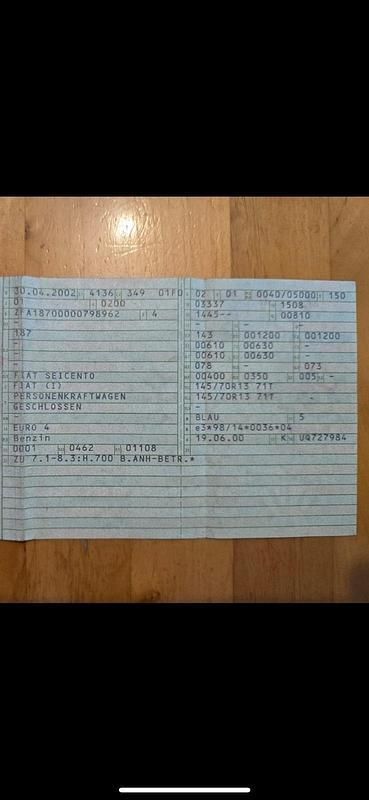 30.04.2002 4136 349 01FD
01 0200
ZFA18700000798962 4
187
-
-
-
FIAT SEICENTO
FIAT (I)
PERSONENKRAFTWAGEN
GESCHLOSSEN
-
EURO 4
Benzin
0001 0462 01108
ZU 7.1-8.3:H.700 B.ANH-BETR.*
02 01 0040/05000 150
03337 1508
1445-- 00810
- - -
143 001200 001200
00610 00630 -
00610 00630 -
078 - 073
00400 0350 005 -
145/70R13 71T
145/70R13 71T -
-
BLAU 5
e3*98/14*0036*04
19.06.00 K UQ727984